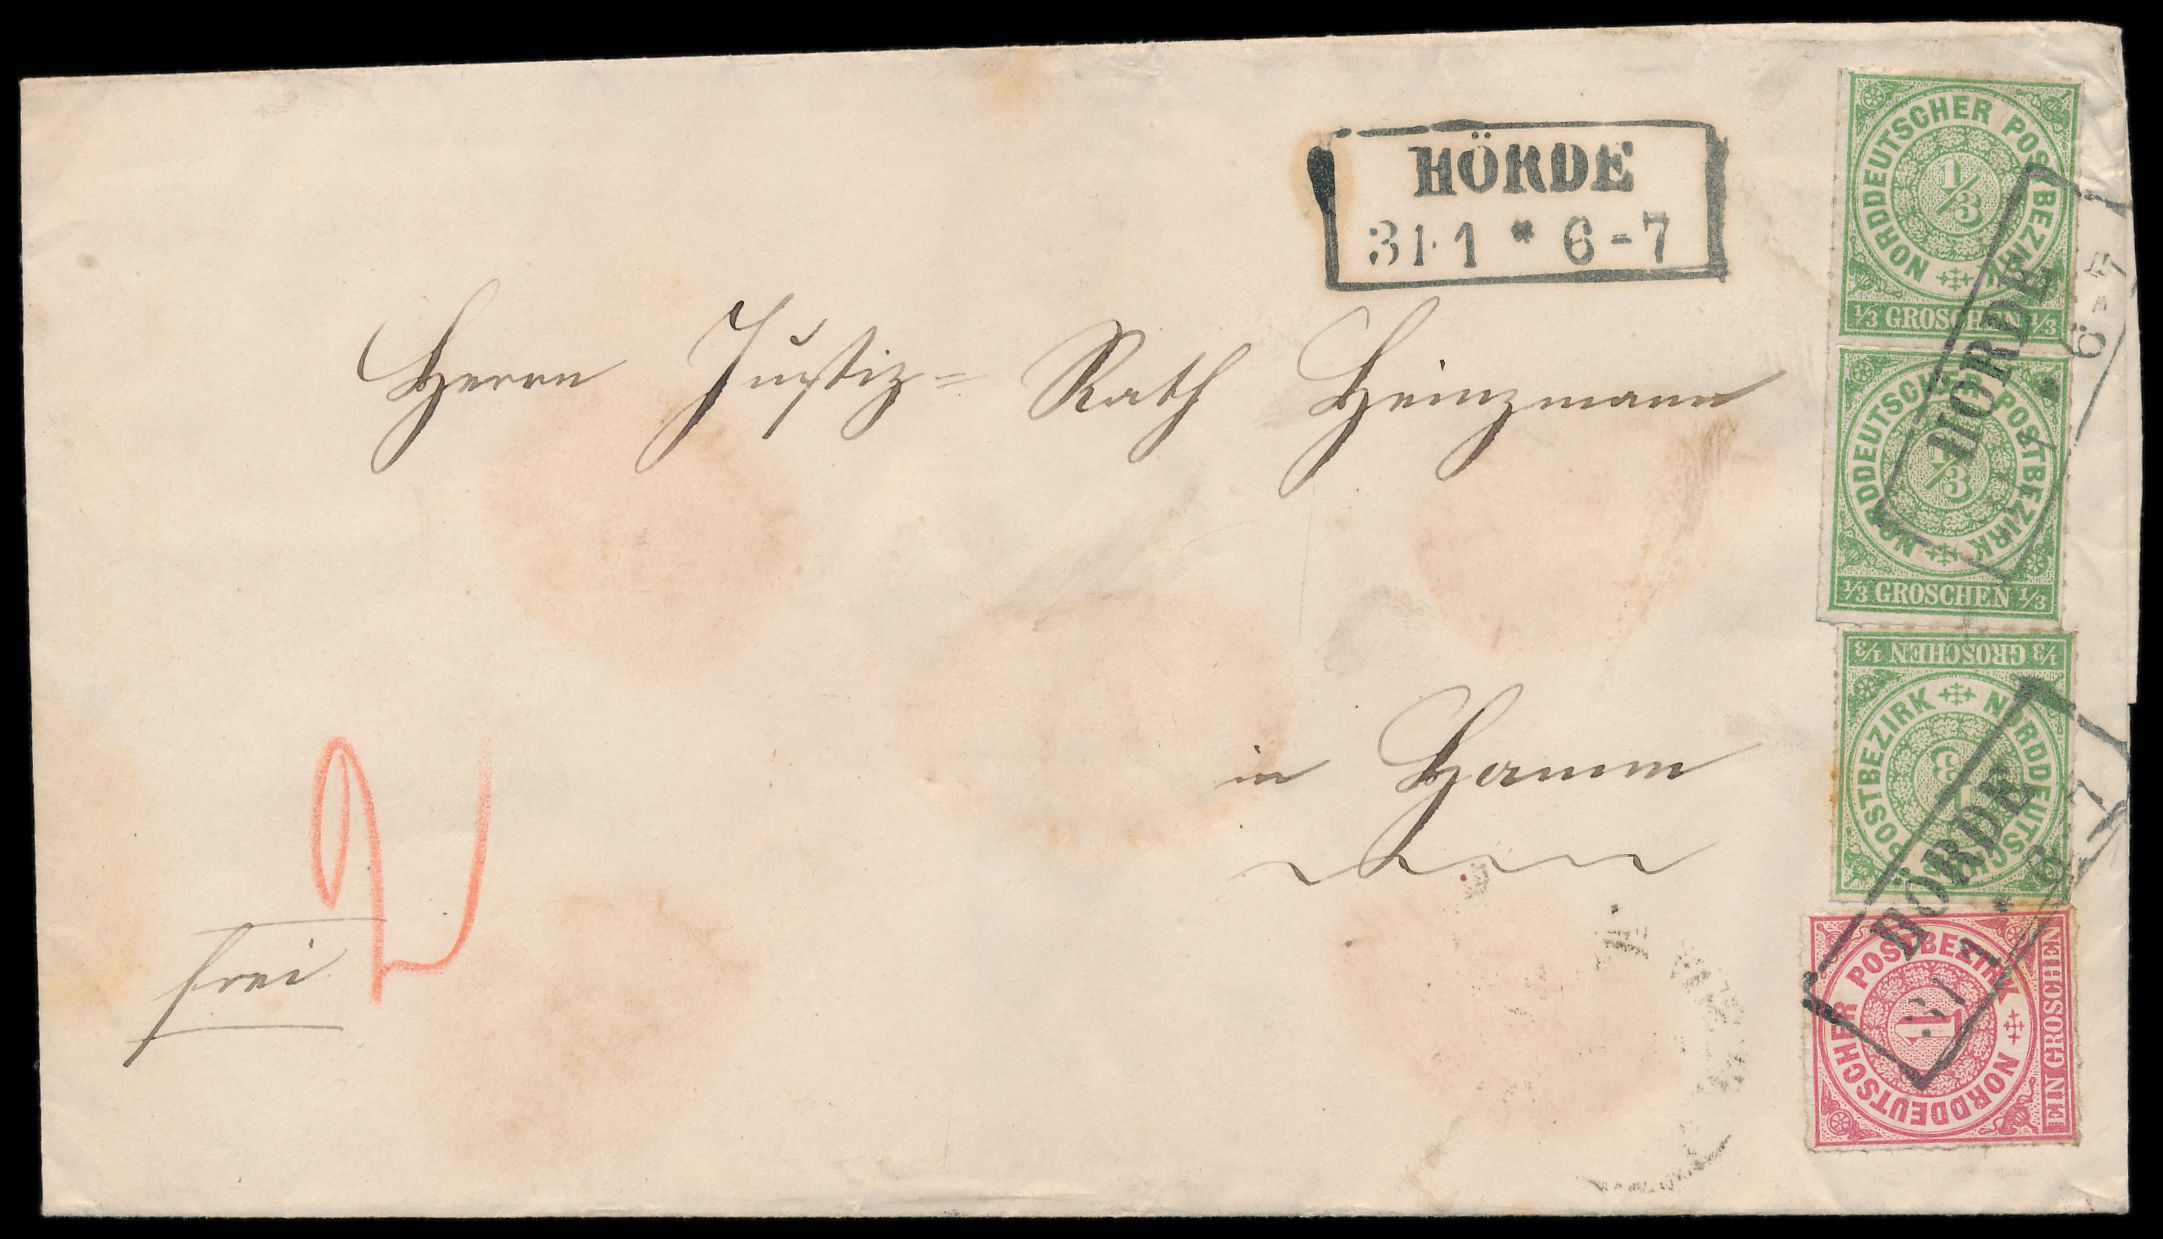 HÖRDE
31 1 * 6-7
Herrn Justiz= Rath Heinzmann
in Hamm
2
frei
NORDDEUTSCHER POSTBEZIRK
1/3
1/3 GROSCHEN 1/3
NORDDEUTSCHER POSTBEZIRK
1/3
1/3 GROSCHEN 1/3
HÖRDE
* 6-7
1/3 GROSCHEN 1/3
NORDDEUTSCHER POSTBEZIRK
1/3
HÖRDE
31 1 * 6-7
NORDDEUTSCHER POSTBEZIRK
1
EIN GROSCHEN